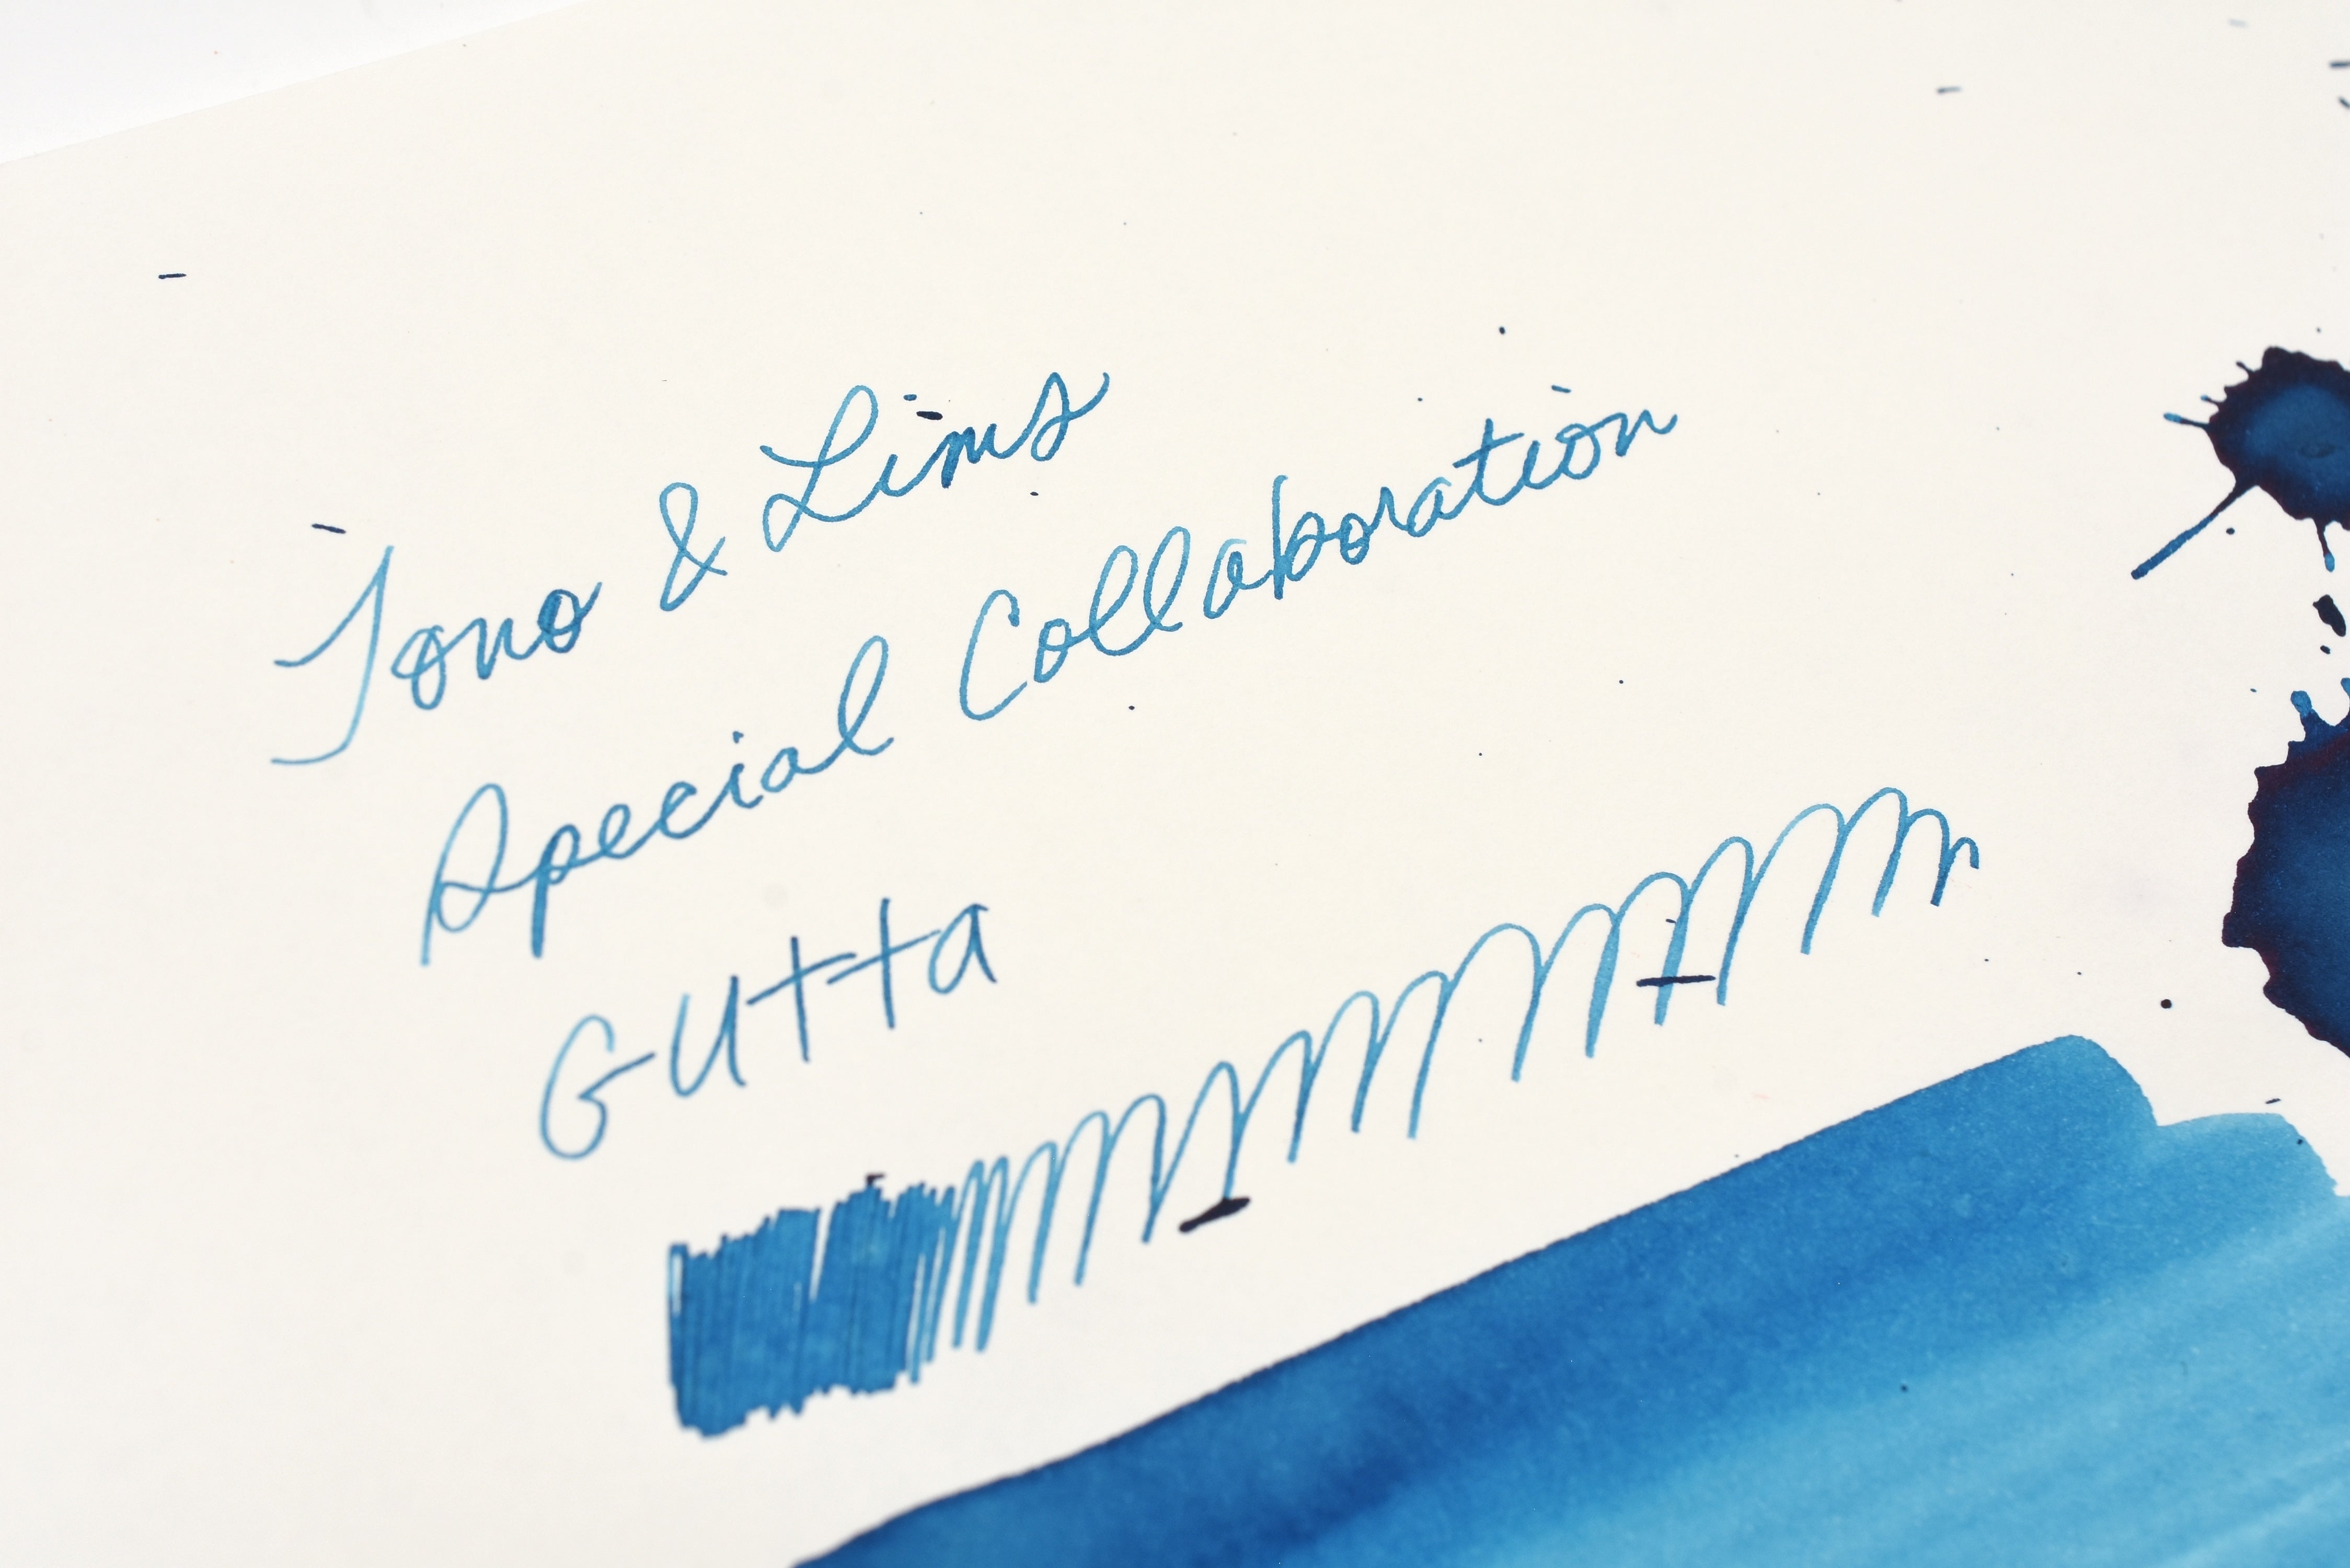 Tono & Lims
Special Collaboration
Gutta